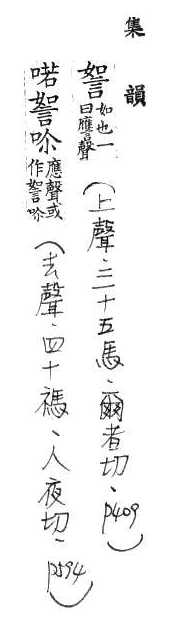 集韻
㗂 如也一曰應聲 (上聲、三十五馬、爾者切、p409)
喏𧧏㖠 應聲或作𧧏㖠 (去聲、四十禡、人夜切、p594)